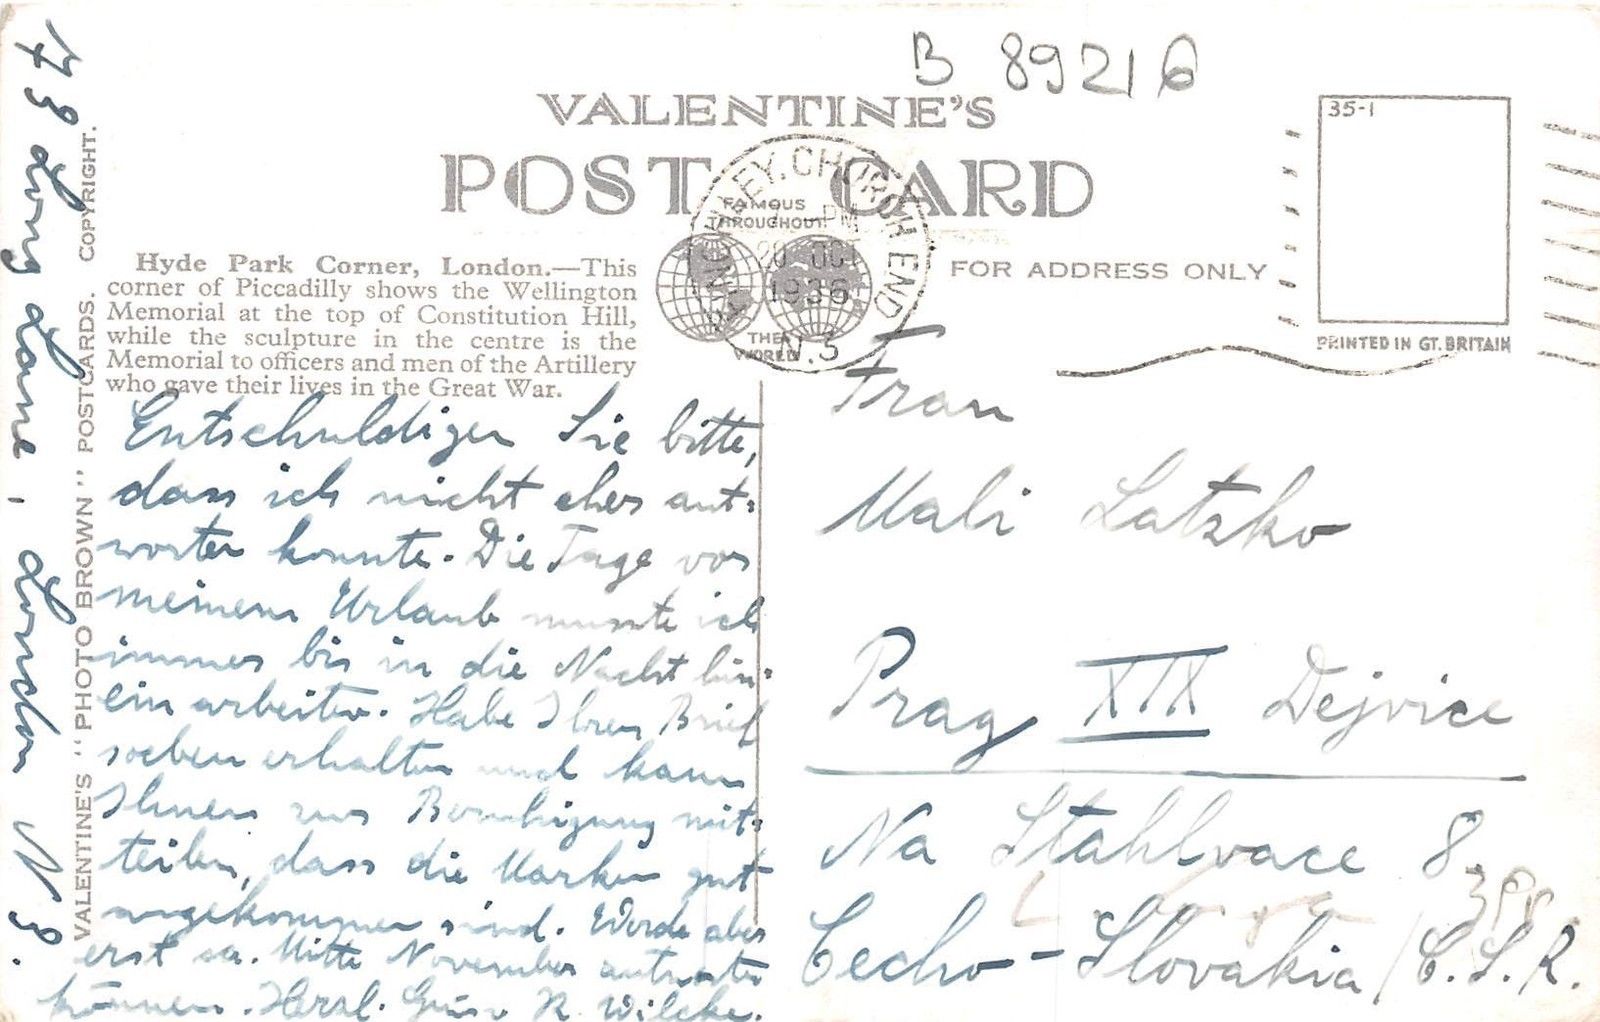 B 89216
VALENTINE'S
POST CARD
FINCHLEY. CHURCH END
PM
20 OCT
1936
N.3
FAMOUS
THROUGHOUT
THE
WORLD
35-1
FOR ADDRESS ONLY
PRINTED IN GT. BRITAIN
Hyde Park Corner, London.—This
corner of Piccadilly shows the Wellington
Memorial at the top of Constitution Hill,
while the sculpture in the centre is the
Memorial to officers and men of the Artillery
who gave their lives in the Great War.
VALENTINE'S "PHOTO BROWN" POSTCARDS. COPYRIGHT.
Entschuldigen Sie bitte,
dass ich nicht eher ant-
worten konnte. Die Tage vor
meinem Urlaub musste ich
immer bis in die Nacht hin-
ein arbeiten. Habe Ihren Brief
soeben erhalten und kann
Ihnen zur Beruhigung mit-
teilen, dass die Marken gut
angekommen sind. Werde aber
erst ca. Mitte November antworten
können. Herzl. Grüsse R. Wilcke.
Long Lane, London N 3.
Frau
Mali Latzko
Prag XIX Dejvice
Na Stahlvace 8
Cecho-Slovakia / C.S.R.